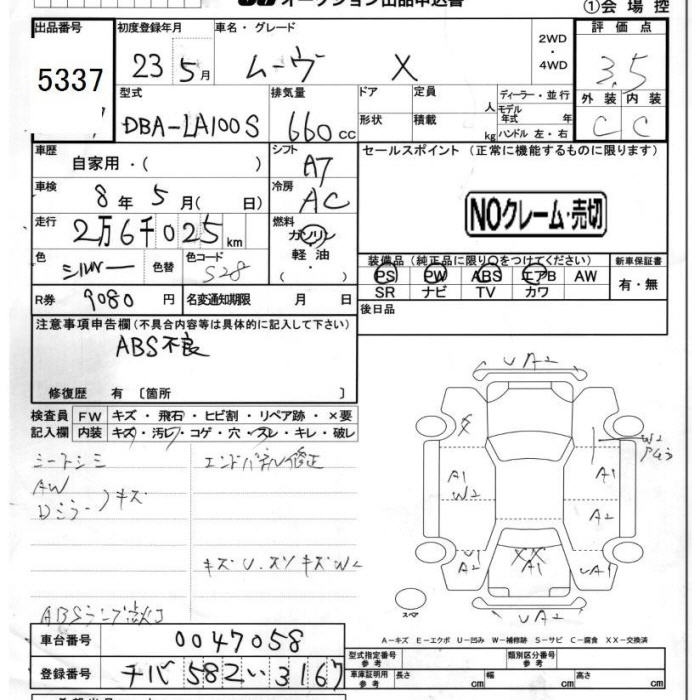 オークション出品申込書
①会場控
出品番号
5337
初度登録年月
23 5月
車名・グレード
ムーヴ X
2WD
・
4WD
評価点
3.5
外装 内装
C C
型式
DBA-LA100S
排気量
660 cc
ドア 定員 人
形状 積載 kg
ディーラー・並行
モデル年式 年
ハンドル 左・右
車歴
自家用・( )
シフト
A7
セールスポイント (正常に機能するものに限ります)
NOクレーム・売切
車検
8年 5月( 日)
冷房
AC
走行
2万6千025km
燃料
ガソリン
軽油
( ・ )
色
シルバー
色替
色コード
S28
装備品(純正品に限り○をつけてください)
PS PW ABS エアB AW
SR ナビ TV カワ
新車保証書
有・無
R券 9080円
名変通知期限 月 日
後日品
注意事項申告欄(不具合内容等は具体的に記入して下さい)
ABS不良
修復歴 有 〔箇所 〕
検査員
記入欄
FW キズ・飛石・ヒビ割・リペア跡・×要
内装 キズ・汚レ・コゲ・穴・スレ・キレ・破レ
シートシミ
AW
Dミラー キズ
エンドパネル修正
キズU.スソキズW2
ABSランプ点灯
UA2
A1
W2
W2
A1
A2
A2
XX
A1
UA1
UA2
スペア
A-キズ E-エクボ U-凹み W-補修跡 S-サビ C-腐食 XX-交換済
車台番号
0047058
登録番号
チバ582い3167
型式指定番号
参考
類別区分番号
参考
車庫証明用
参考
長さ cm 幅 cm 高さ cm